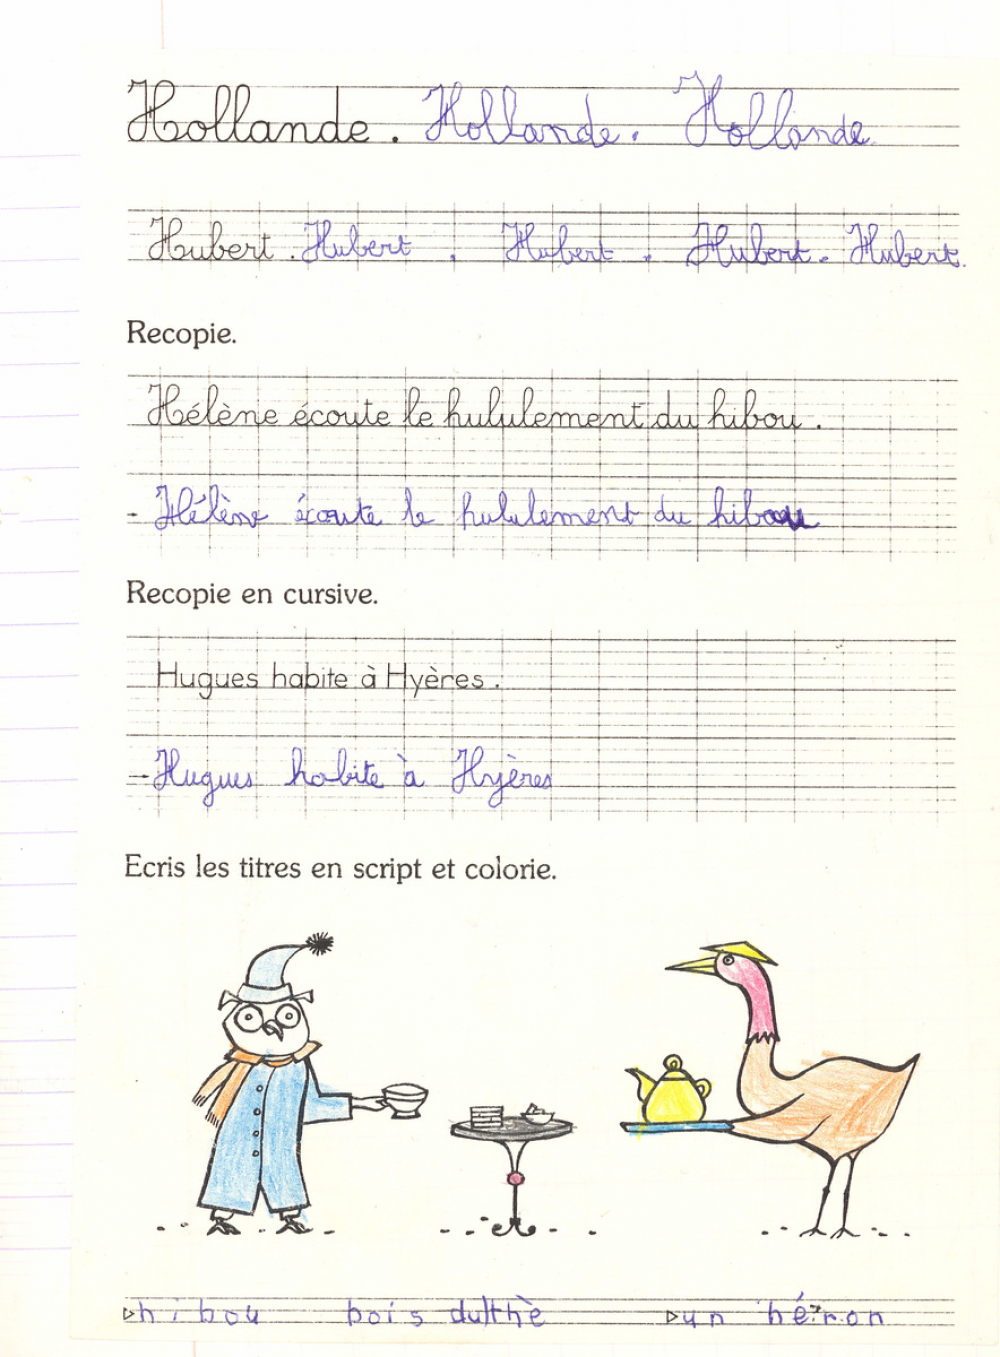 Hollande. Hollande. Hollande
Hubert. Hubert. Hubert. Hubert. Hubert.
Recopie.
Hélène écoute le hululement du hibou.
- Hélène écoute le hululement du hibou
Recopie en cursive.
Hugues habite à Hyères.
- Hugues habite à Hyères
Ecris les titres en script et colorie.
hibou bois du thè un héron